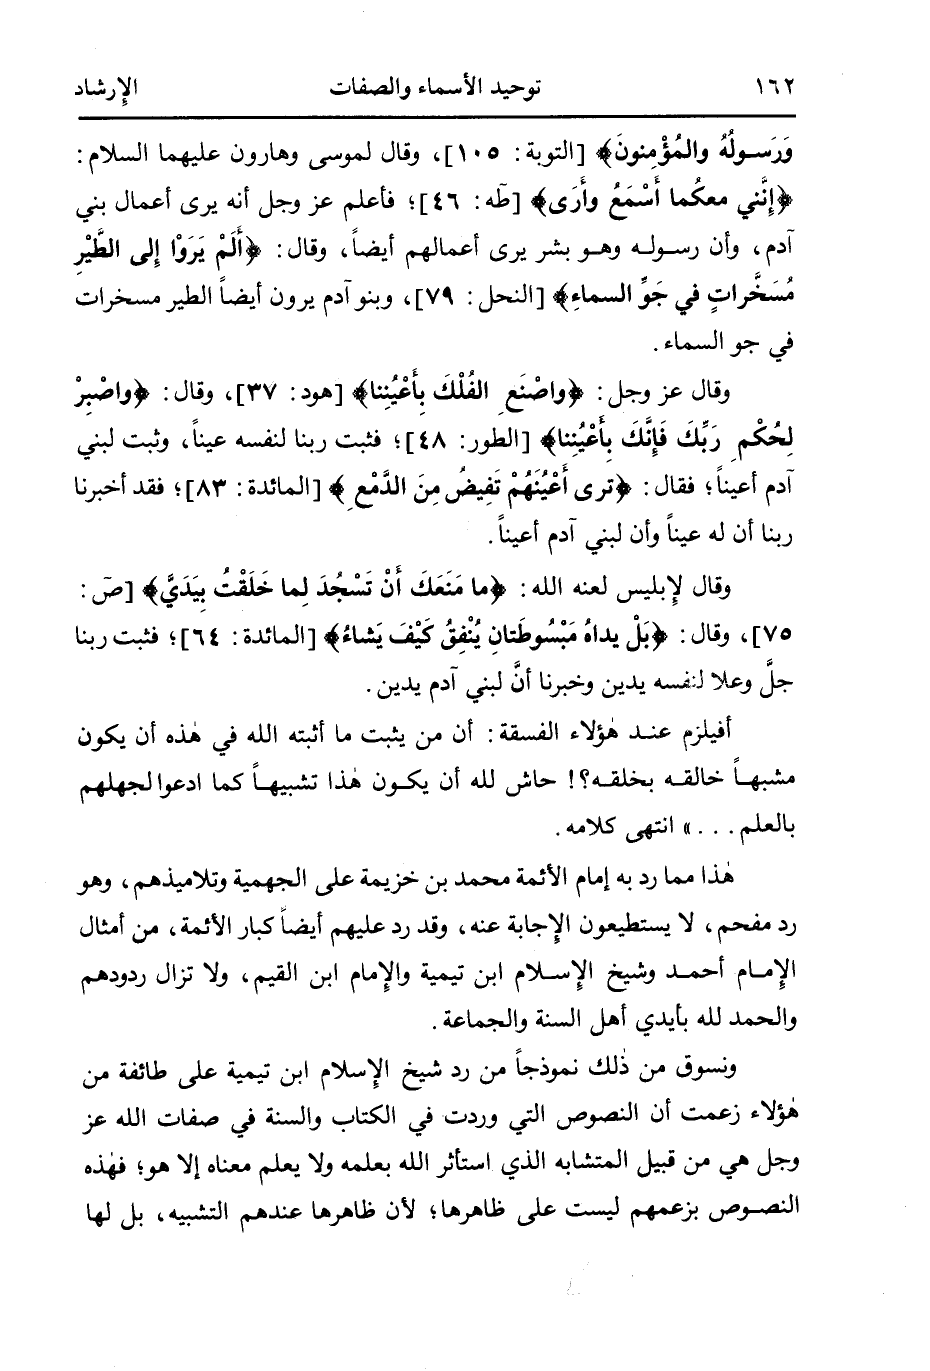 ١٦٢ توحيد الأسماء والصفات الإرشاد
وَرَسـولُهُ والمُؤْمِنونَ﴾ [التوبة: ١٠٥]، وقال لموسى وهارون عليهما السلام:
﴿إِنَّني معكُما أَسْمَعُ وأَرَى﴾ [طٰه: ٤٦]؛ فأعلم عز وجل أنه يرى أعمال بني
آدم، وأن رسولـه وهـو بشر يرى أعمالهم أيضاً، وقال: ﴿أَلَمْ يَرَوْا إِلى الطَّيْرِ
مُسَخَّراتٍ في جَوِّ السماءِ﴾ [النحل: ٧٩]، وبنو آدم يرون أيضاً الطير مسخرات
في جو السماء.
وقال عز وجل: ﴿واصْنَعِ الفُلْكَ بِأَعْيُنِنا﴾ [هود: ٣٧]، وقال: ﴿واصْبِرْ
لِحُكْمِ رَبِّكَ فَإِنَّكَ بِأَعْيُنِنا﴾ [الطور: ٤٨]؛ فثبت ربنا لنفسه عيناً، وثبت لبني
آدم أعيناً؛ فقال: ﴿ترى أَعْيُنَهُمْ تَفيضُ مِنَ الدَّمْعِ﴾ [المائدة: ٨٣]؛ فقد أخبرنا
ربنا أن له عيناً وأن لبني آدم أعيناً.
وقال لإبليس لعنه الله: ﴿ما مَنَعَكَ أَنْ تَسْجُدَ لِما خَلَقْتُ بِيَدَيَّ﴾ [صٓ:
٧٥]، وقال: ﴿بَلْ يداهُ مَبْسُوطَتانِ يُنْفِقُ كَيْفَ يَشاءُ﴾ [المائدة: ٦٤]؛ فثبت ربنا
جلَّ وعلا لنفسه يدين وخبرنا أنَّ لبني آدم يدين.
أفيلزم عنـد هٰؤلاء الفسقة: أن من يثبت ما أثبته الله في هٰذه أن يكون
مشبهـاً خالقـه بخلقـه؟! حاش لله أن يكـون هٰذا تشبيهـاً كما ادعوا لجهلهم
بالعلم...» انتهى كلامه.
هٰذا مما رد به إمام الأئمة محمد بن خزيمة على الجهمية وتلاميذهم، وهو
رد مفحم، لا يستطيعون الإجابة عنه، وقد رد عليهم أيضاً كبار الأئمة، من أمثال
الإمـام أحمـد وشيخ الإسـلام ابن تيمية والإمام ابن القيم، ولا تزال ردودهم
والحمد لله بأيدي أهل السنة والجماعة.
ونسوق من ذٰلك نموذجاً من رد شيخ الإسلام ابن تيمية على طائفة من
هٰؤلاء زعمت أن النصوص التي وردت في الكتاب والسنة في صفات الله عز
وجل هي من قبيل المتشابه الذي استأثر الله بعلمه ولا يعلم معناه إلا هو؛ فهٰذه
النصـوص بزعمهم ليست على ظاهرها؛ لأن ظاهرها عندهم التشبيه، بل لها